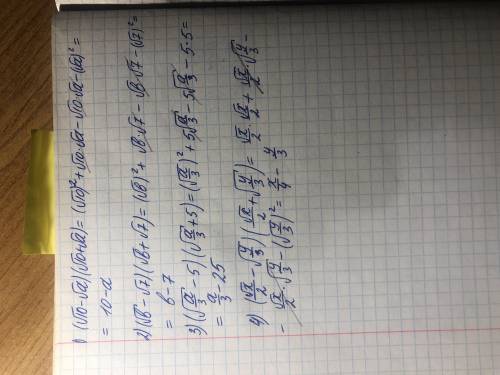 1) (√10-√a)(√10+√a) = (√10)²+√10·√a-√10·√a-(√a)²=
= 10-a
2) (√b-√7)(√b+√7)=(√b)²+√b·√7-√b·√7-(√7)²=
= b-7
3) (√a/3-5)(√a/3+5)=(√a/3)²+5√a/3-5√a/3-5·5=
= a/3-25
4) (√x/2-√y/3)(√x/2+√y/3)=√x/2·√x/2+√x/2·√y/3-
-√x/2·√y/3-(√y/3)²=x/4-y/3